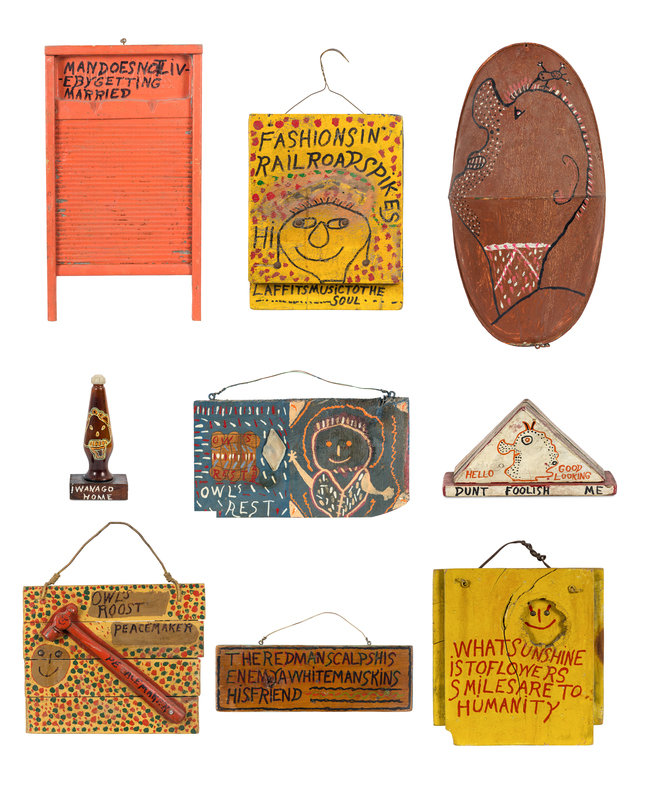 MANDOESNOTLIV-
EBYGETTING
MARRIED
FASHIONSIN
RAILROADSPIKES
HI
LAFFITSMUSICTOTHE
SOUL
IWANAGO
HOME
OWLS
REST
OWLS
REST
HELLO
GOOD
LOOKING
DUNT FOOLISH ME
OWLS
ROOST
PEACEMAKER
PEACEMAKER
THEREDMANSCALPSHIS
ENEMYAWHITEMANSKINS
HISFRIEND
WHATSUNSHINE
ISTOFLOWERS
SMILESARETO
HUMANITY